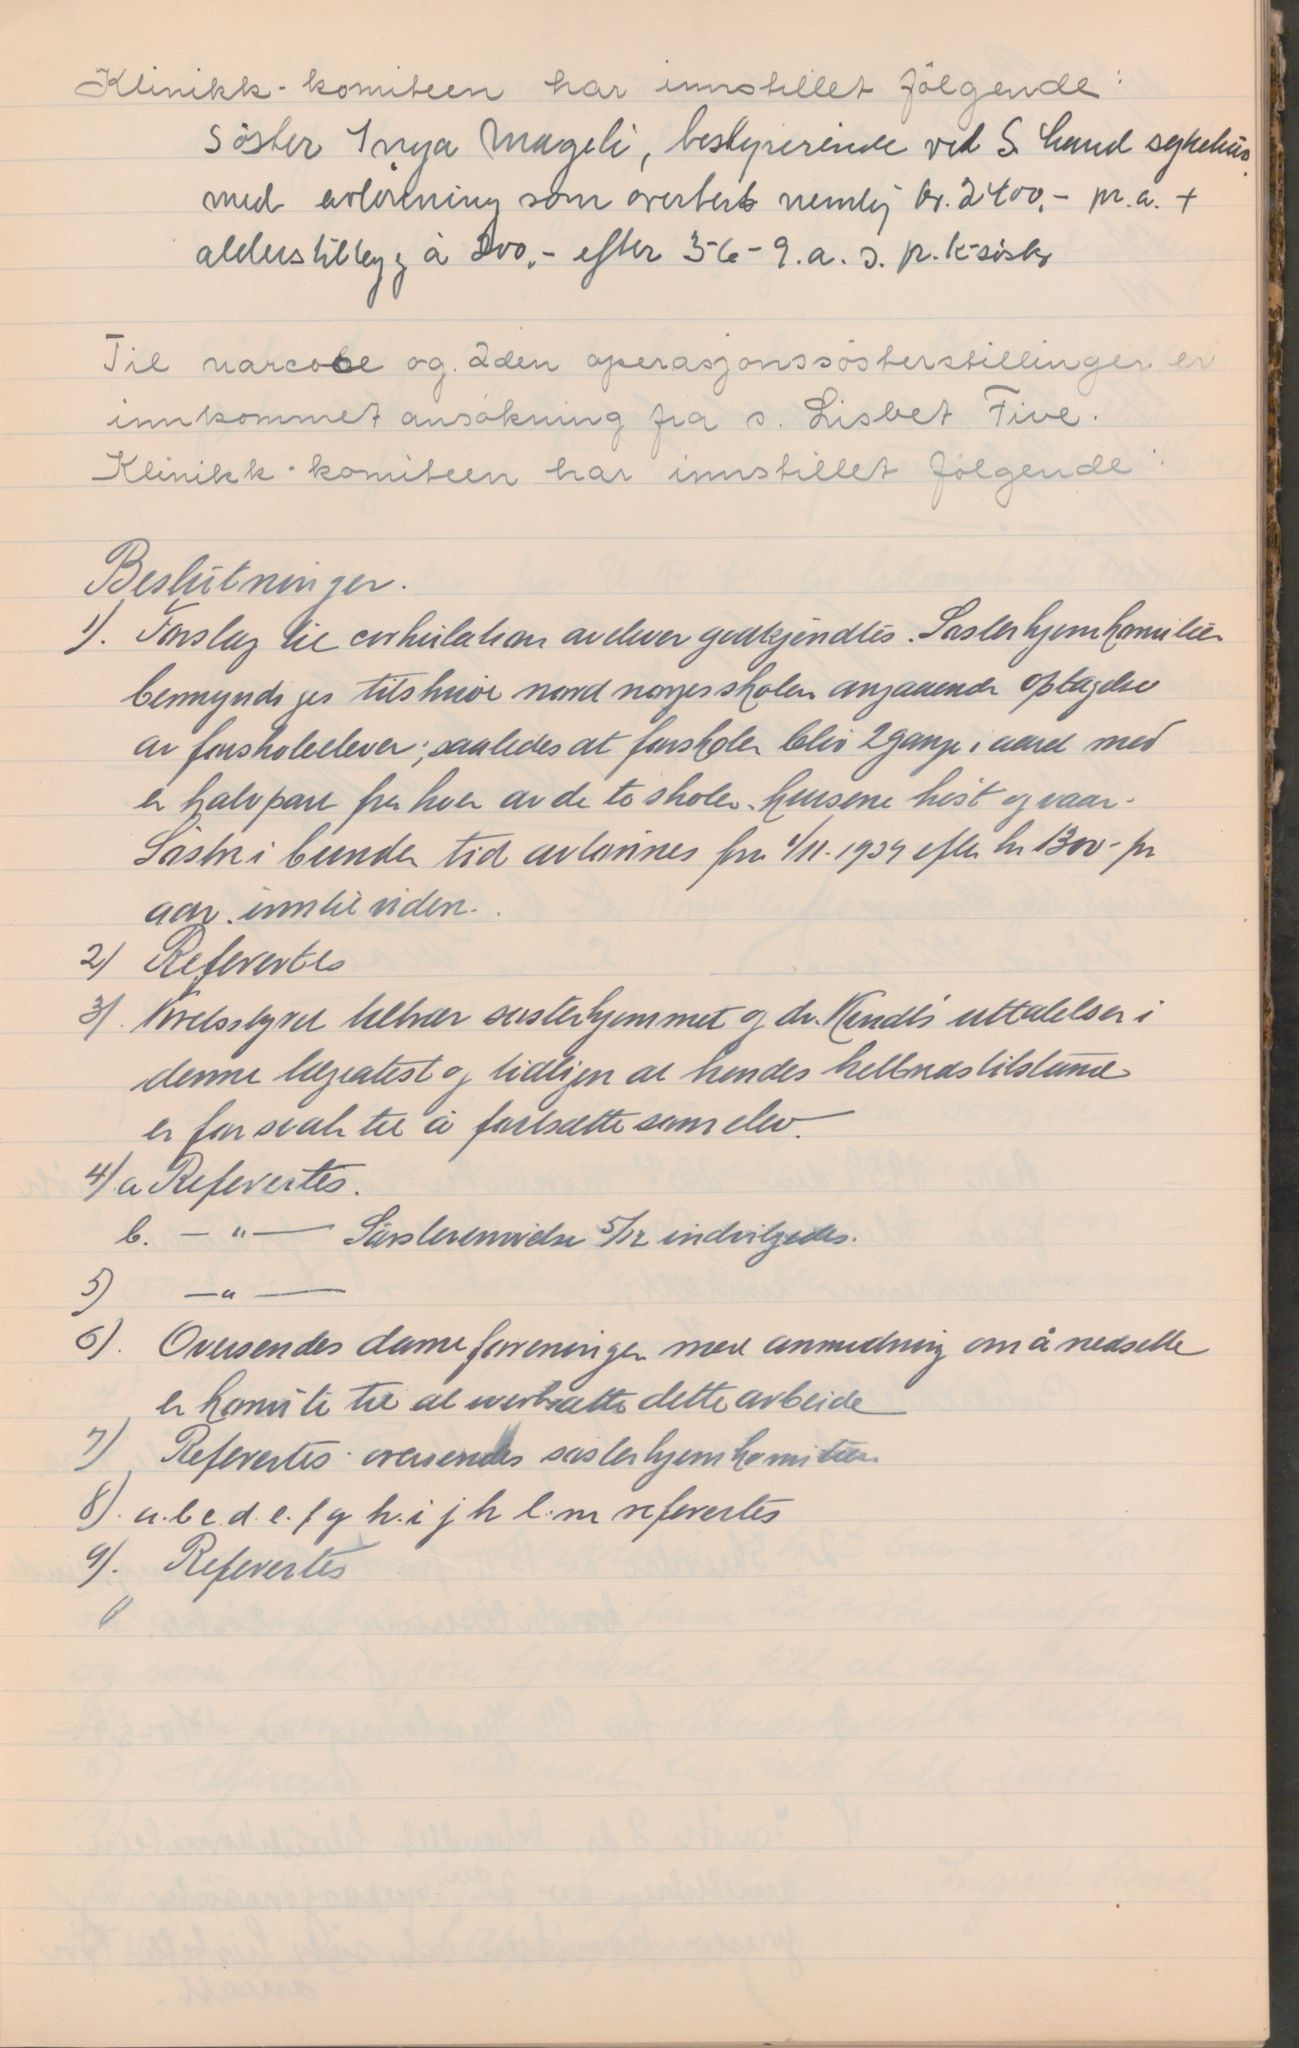 Klinikk-komiteen har innstillet følgende:
Söster Inga Mageli, bestyrerinde ved S. Land sykehus.
med avlönning som overters nemlig kr. 2400,- pr. a. +
alderstillegg á 200,- efter 3-6-9. a. s. pr. k-söster
Til narcose og 2den operasjonssösterstillingen er
innkommet ansökning fra s. Lisbet Five.
Klinikk-komiteen har innstillet fölgende:
Beslutninger.
1). Forslag til cirkulation av elever godkjendtes. Sösterhjemkomiteen
bemyndiges tilskrive nord norgesskolen angaaende optagelse
av forskoleelever; saaledes at forskolen blir 2 gange i aaret med
en halvpart fra hver av de to skoler. Kursene höst og vaar.
Söstre i bunden tid avlönnes fra 1/11-1939 efter kr 1300- pr
aar. inntil viden.
2) Refertes
3). Kretsstyret sösterhjemmet og dr. uttalelser i
denne lægeatest og tidligere at hendes helbredstilstand
er for svak til å fortsætte som elev.
4) a Refertes.
b. - " - 5/12 indvilgedes.
5) - " -
6). Oversendes dameforeningen med anmodning om å nedsette
en komite til at iverksætte dette arbeide
7) Refertes. oversendes sösterhjemkomiteen
8). a. b c. d. e. f g h. i j k l. m refertes
9). Refertes